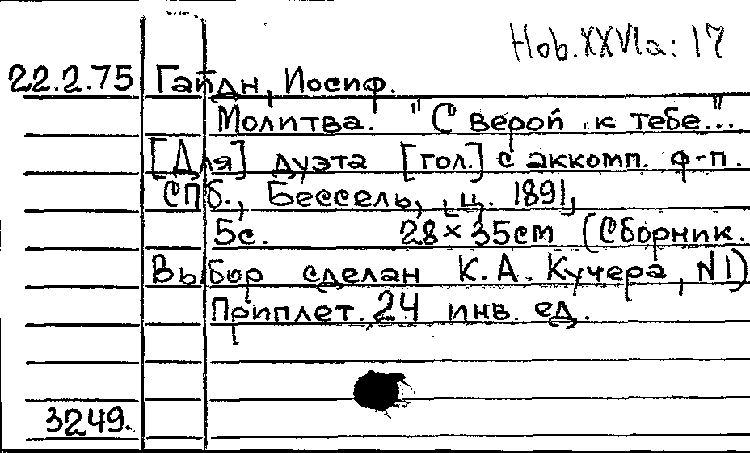 Hob.XXVIa: 17
22.2.75 Гайдн, Иосиф.
Молитва. "С верой к тебе"...
[Для] дуэта [гол.] с аккомп. ф-п.
СПб., Бессель, ц. 1891,
5с. 28×35см (Сборник.
Выбор сделан К.А. Кучера, N1)
Приплет. 24 инв. ед.
3249.